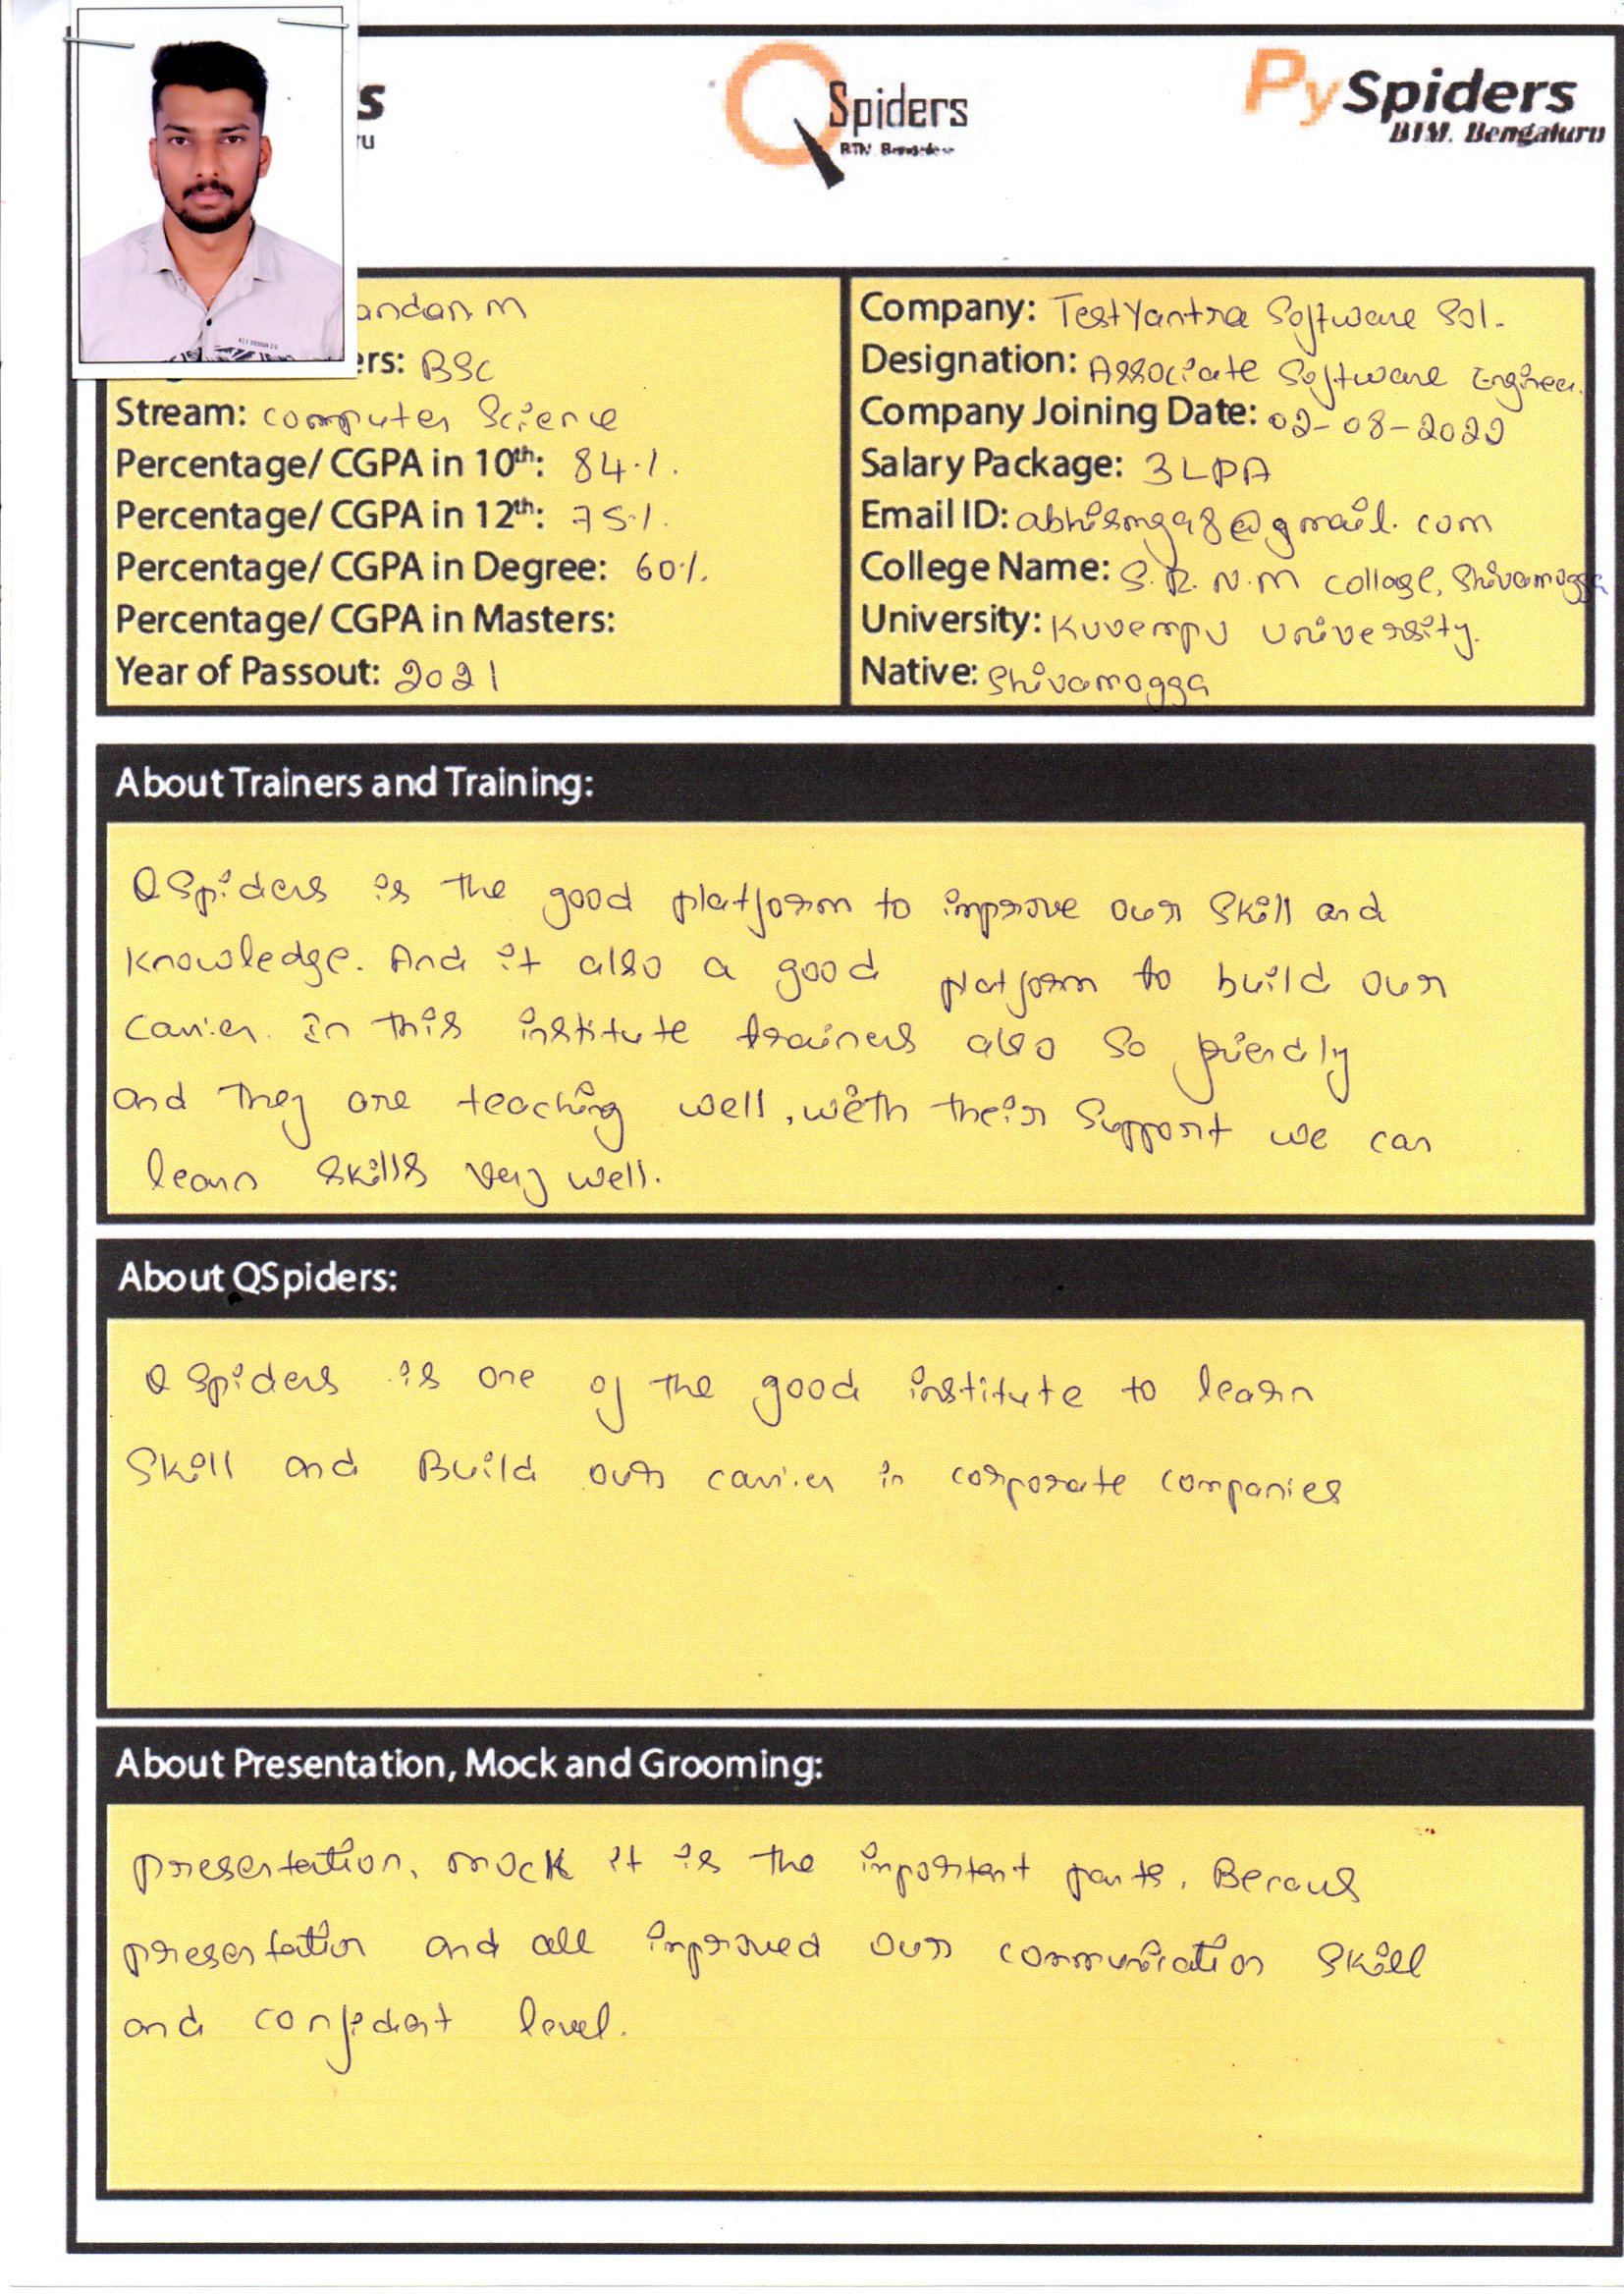 Spiders
BTM. Bengaluru
PySpiders
BTM. Bengaluru
andan. M
ers: BSC
Stream: Computer Science
Percentage/ CGPA in 10th: 84%.
Percentage/ CGPA in 12th: 75%.
Percentage/ CGPA in Degree: 60%.
Percentage/ CGPA in Masters:
Year of Passout: 2021
Company: TestYantra Software Sol.
Designation: Associate Software Engineer.
Company Joining Date: 02-08-2022
Salary Package: 3LPA
Email ID: abhismg98@gmail.com
College Name: S.R.N.M college, Shivamogga
University: Kuvempu University.
Native: Shivamogga
About Trainers and Training:
QSpiders is the good platform to improve our Skill and
Knowledge. And it also a good platform to build our
carrier. In this institute trainers also so friendly
and they are teaching well, with their Support we can
learn skills very well.
About QSpiders:
QSpiders is one of the good institute to learn
Skill and Build our carrier in corporate companies
About Presentation, Mock and Grooming:
presentation, mock it is the important parts. Becaus
presentation and all improved our communication Skill
and confident level.